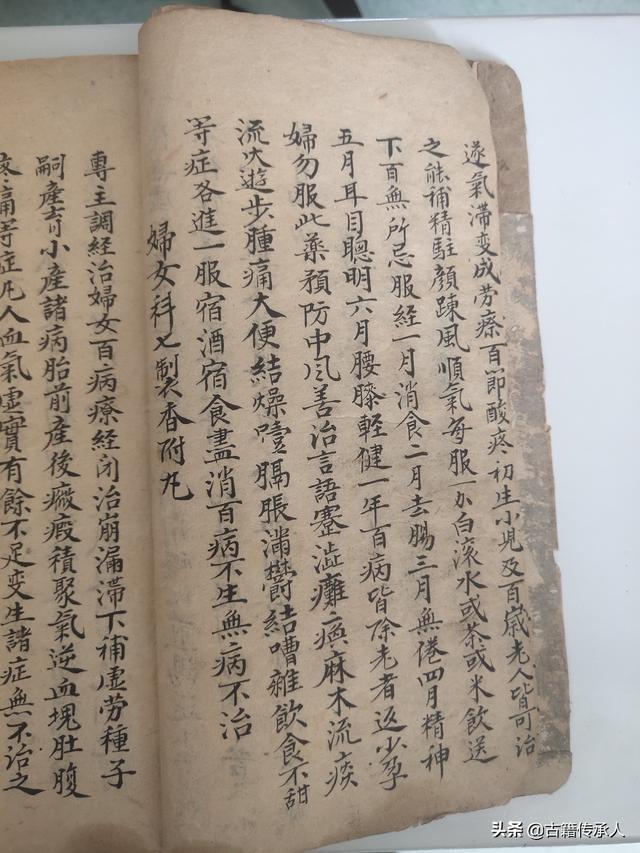 遂氣滯变成劳瘵百節酸疼初生小児及百歳老人皆可治
之能補精駐顔踈風順氣每服一分白滚水或茶或米飲送
下百無所忌服經一月消食二月去腸三月無倦四月精神
五月耳目聰明六月腰膝輕健一年百病皆除老者返少孕
婦勿服此藥預防中風善治言語蹇澁癱瘓麻木流痰
流火遊步腫痛大便結燥噎膈脹滿鬱結嘈雜飲食不甜
等症各進一服宿酒宿食盡消百病不生無病不治
婦女科七製香附丸
專主調經治婦女百病療經闭治崩漏滯下補虛劳種子
嗣產育小產諸病胎前產後癥瘕積聚氣逆血塊肚腹
疼痛等症凡人血氣虛實有餘不足变生諸症無不治之
头条@古籍传承人